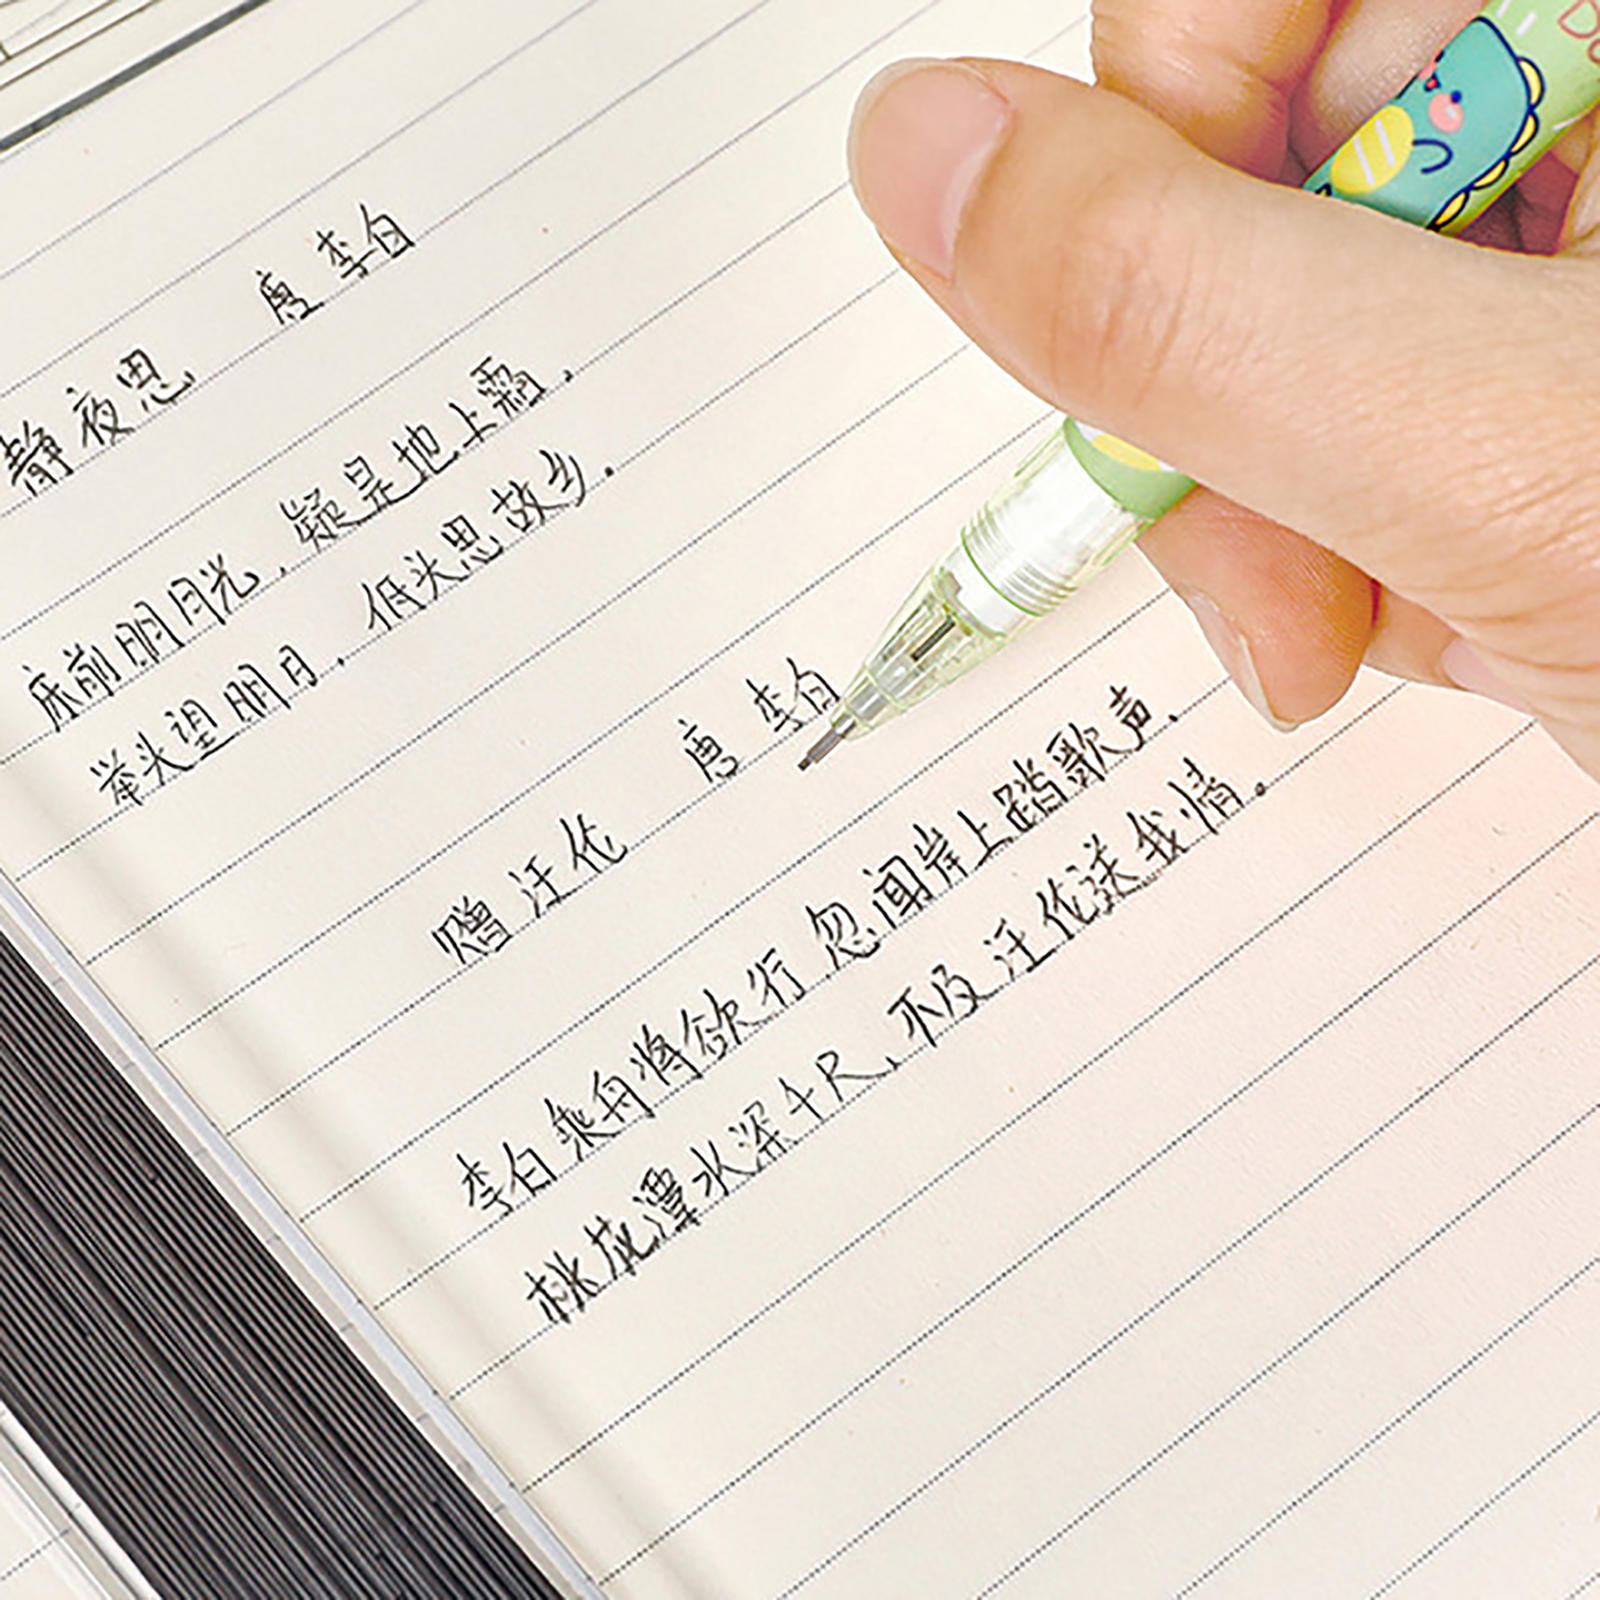 静夜思 唐 李白
床前明月光，疑是地上霜，
举头望明月，低头思故乡.
赠汪伦 唐 李白
李白乘舟将欲行 忽闻岸上踏歌声，
桃花潭水深千尺，不及汪伦送我情。